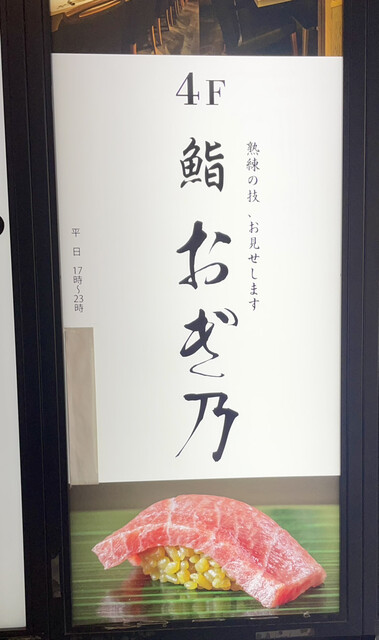 4F
熟練の技、お見せします
鮨 おぎ乃
平日 17時~23時